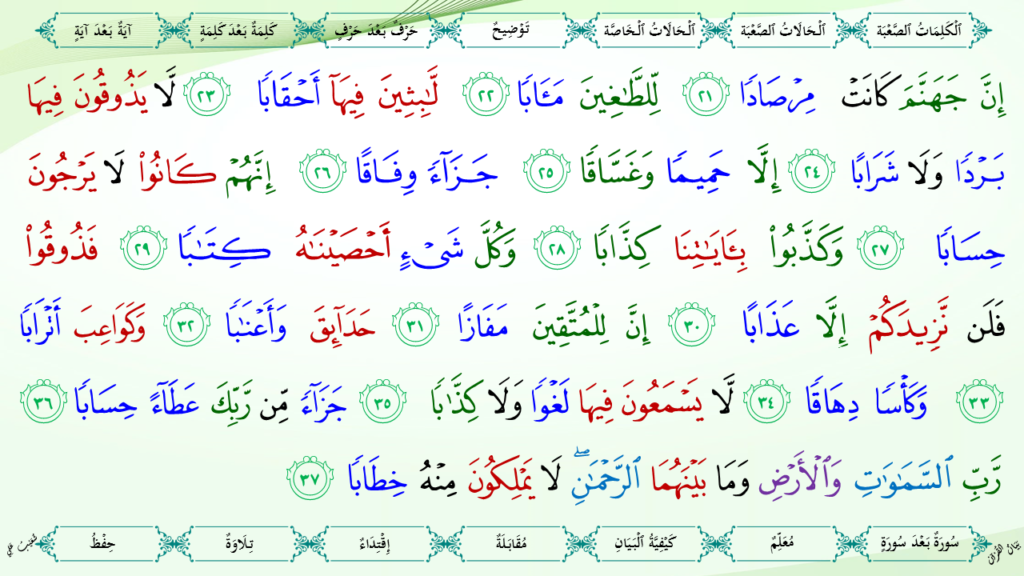 ٱلْكَلِمَاتُ ٱلصَّعْبَة
ٱلْحَالَاتُ ٱلصَّعْبَة
ٱلْحَالَاتُ ٱلْخَاصَّة
تَوْضِيحٌ
حَرْفٌ بَعْدَ حَرْفٍ
كَلِمَةٌ بَعْدَ كَلِمَةٍ
آيَةٌ بَعْدَ آيَةٍ
إِنَّ جَهَنَّمَ كَانَتْ مِرْصَادًا ٢١ لِّلطَّٰغِينَ مَـَٔابًا ٢٢ لَّٰبِثِينَ فِيهَآ أَحْقَابًا ٢٣ لَّا يَذُوقُونَ فِيهَا
بَرْدًا وَلَا شَرَابًا ٢٤ إِلَّا حَمِيمًا وَغَسَّاقًا ٢٥ جَزَآءً وِفَاقًا ٢٦ إِنَّهُمْ كَانُوا۟ لَا يَرْجُونَ
حِسَابًا ٢٧ وَكَذَّبُوا۟ بِـَٔايَٰتِنَا كِذَّابًا ٢٨ وَكُلَّ شَىْءٍ أَحْصَيْنَٰهُ كِتَٰبًا ٢٩ فَذُوقُوا۟
فَلَن نَّزِيدَكُمْ إِلَّا عَذَابًا ٣٠ إِنَّ لِلْمُتَّقِينَ مَفَازًا ٣١ حَدَآئِقَ وَأَعْنَٰبًا ٣٢ وَكَوَاعِبَ أَتْرَابًا
٣٣ وَكَأْسًا دِهَاقًا ٣٤ لَّا يَسْمَعُونَ فِيهَا لَغْوًا وَلَا كِذَّٰبًا ٣٥ جَزَآءً مِّن رَّبِّكَ عَطَآءً حِسَابًا ٣٦
رَّبِّ ٱلسَّمَٰوَٰتِ وَٱلْأَرْضِ وَمَا بَيْنَهُمَا ٱلرَّحْمَٰنِ ۖ لَا يَمْلِكُونَ مِنْهُ خِطَابًا ٣٧
سُورَةٌ بَعْدَ سُورَةٍ
مُعَلِّمٌ
كَيْفِيَّةُ ٱلْبَيَانِ
مُقَابَلَةٌ
إِقْتِدَاءٌ
تِلَاوَةٌ
حِفْظٌ
بَيَانُ القُرْآنِ